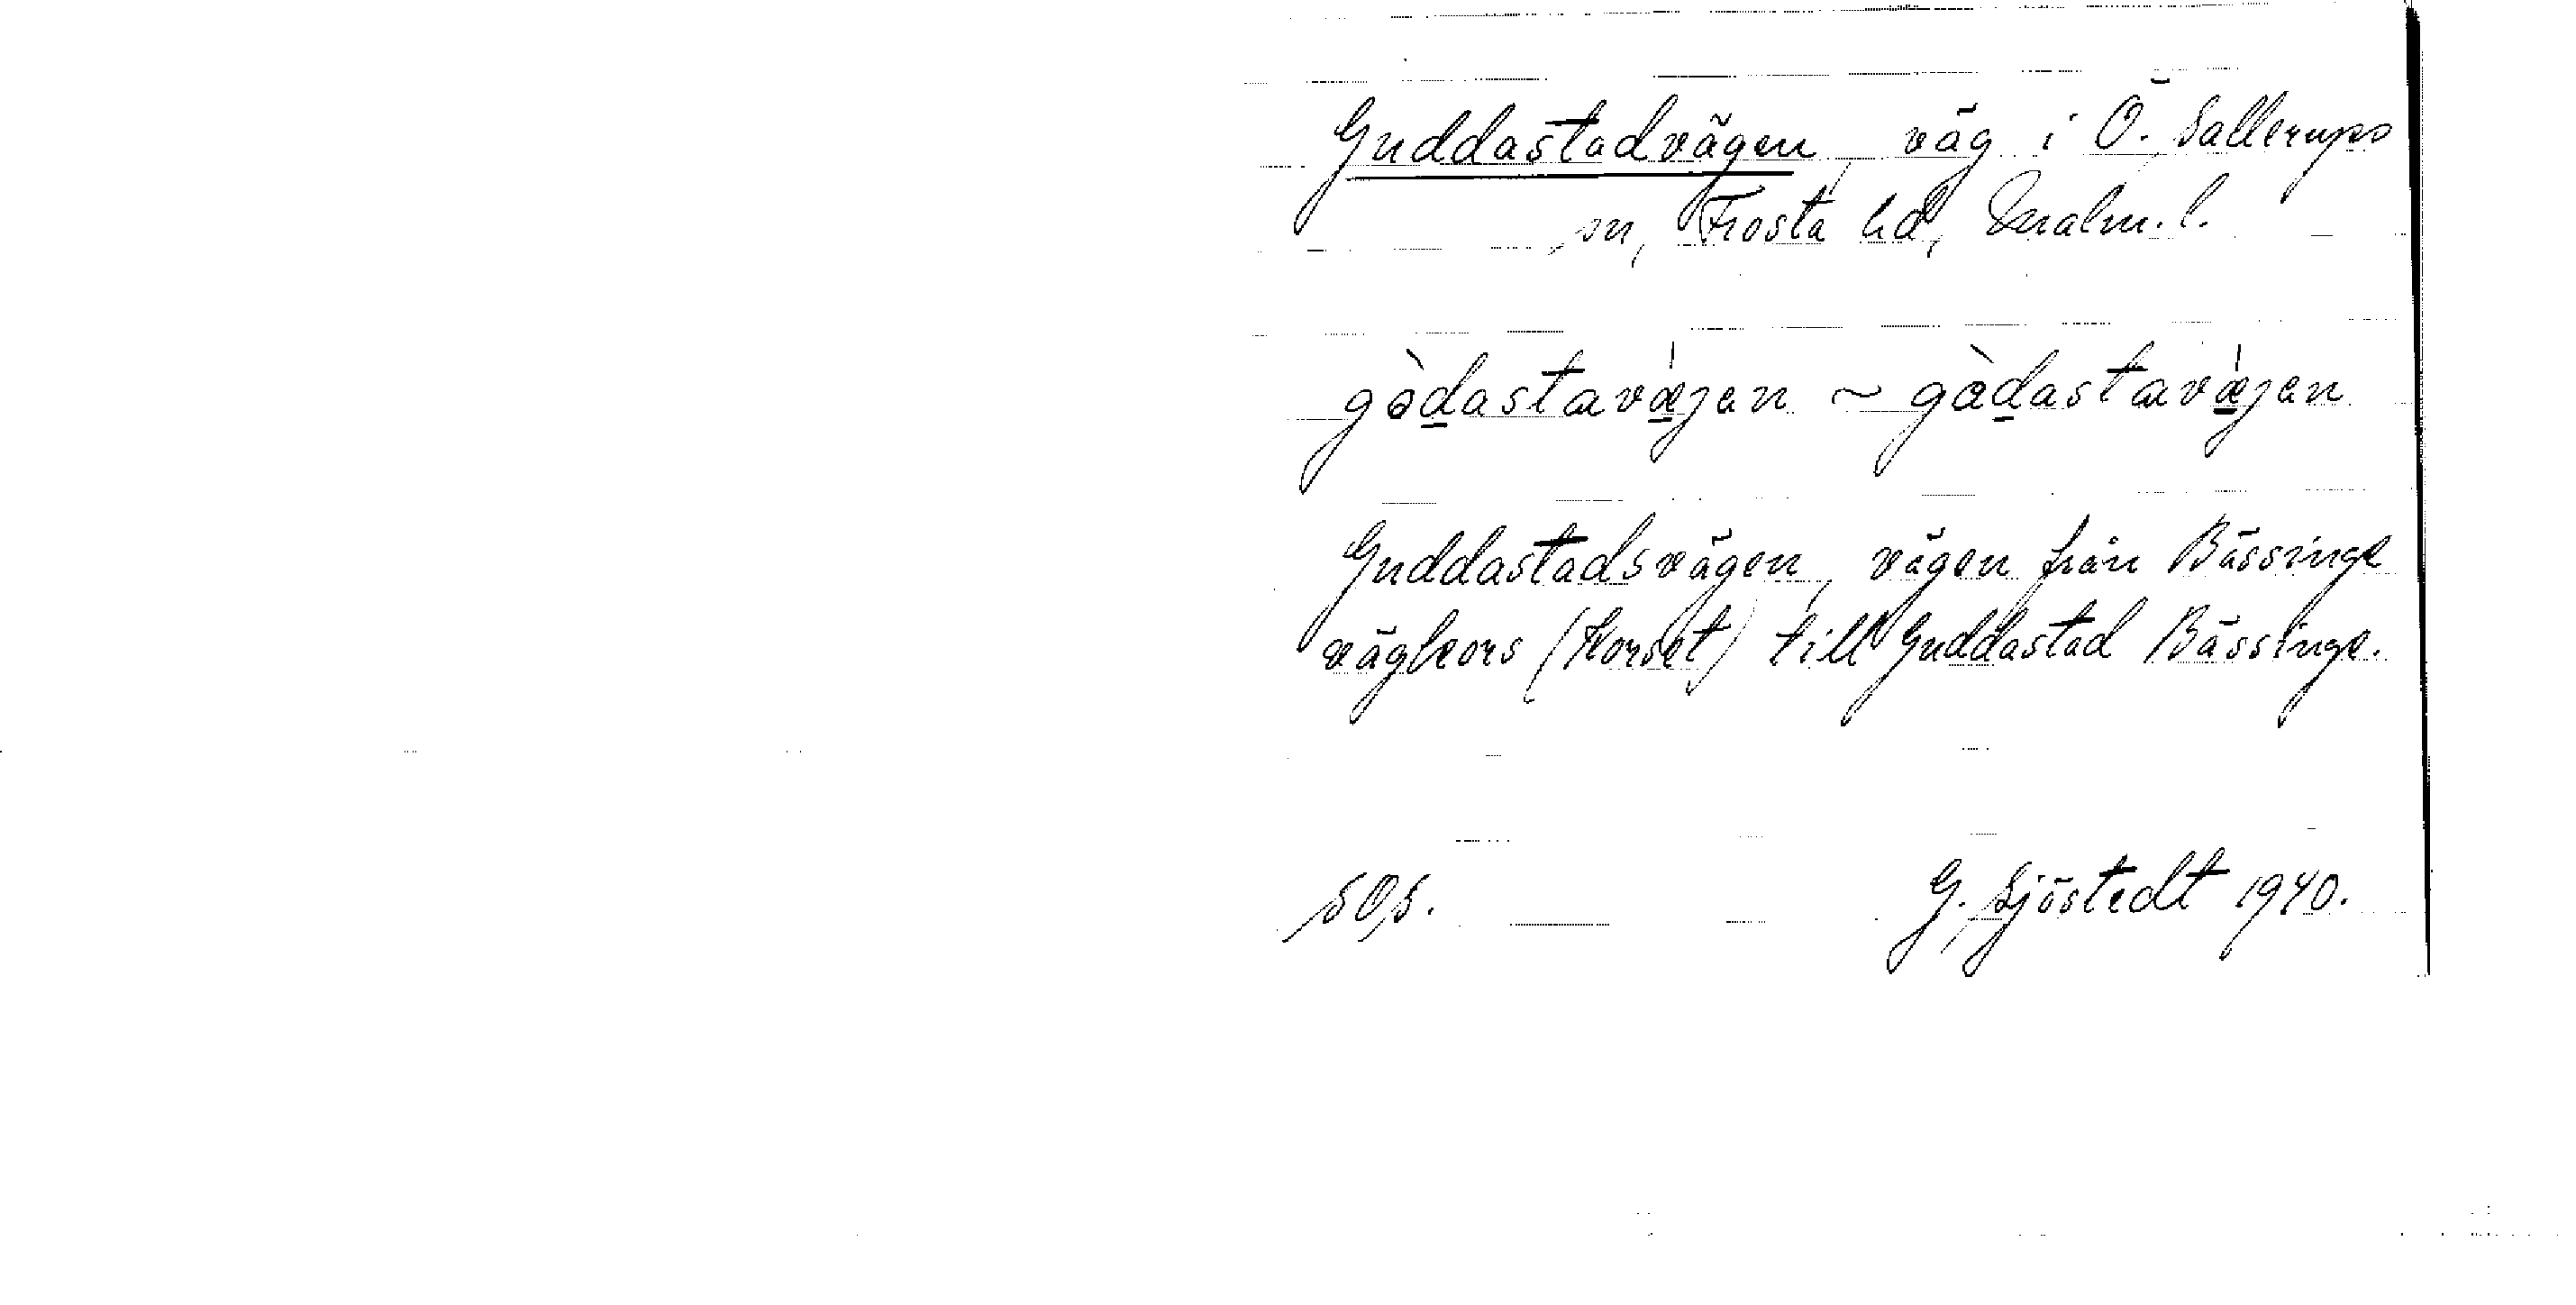 Guddastadvägen, väg i Ö. Sallerups
sn, Frosta hd, Malm. l.
gòdastavǽjen ~ gàdastavǽjen
Guddastadsvägen, vägen från Bässinge
vägkors (Korset) till Guddastad Bässinge.
SOS.
G. Sjöstedt 1940.